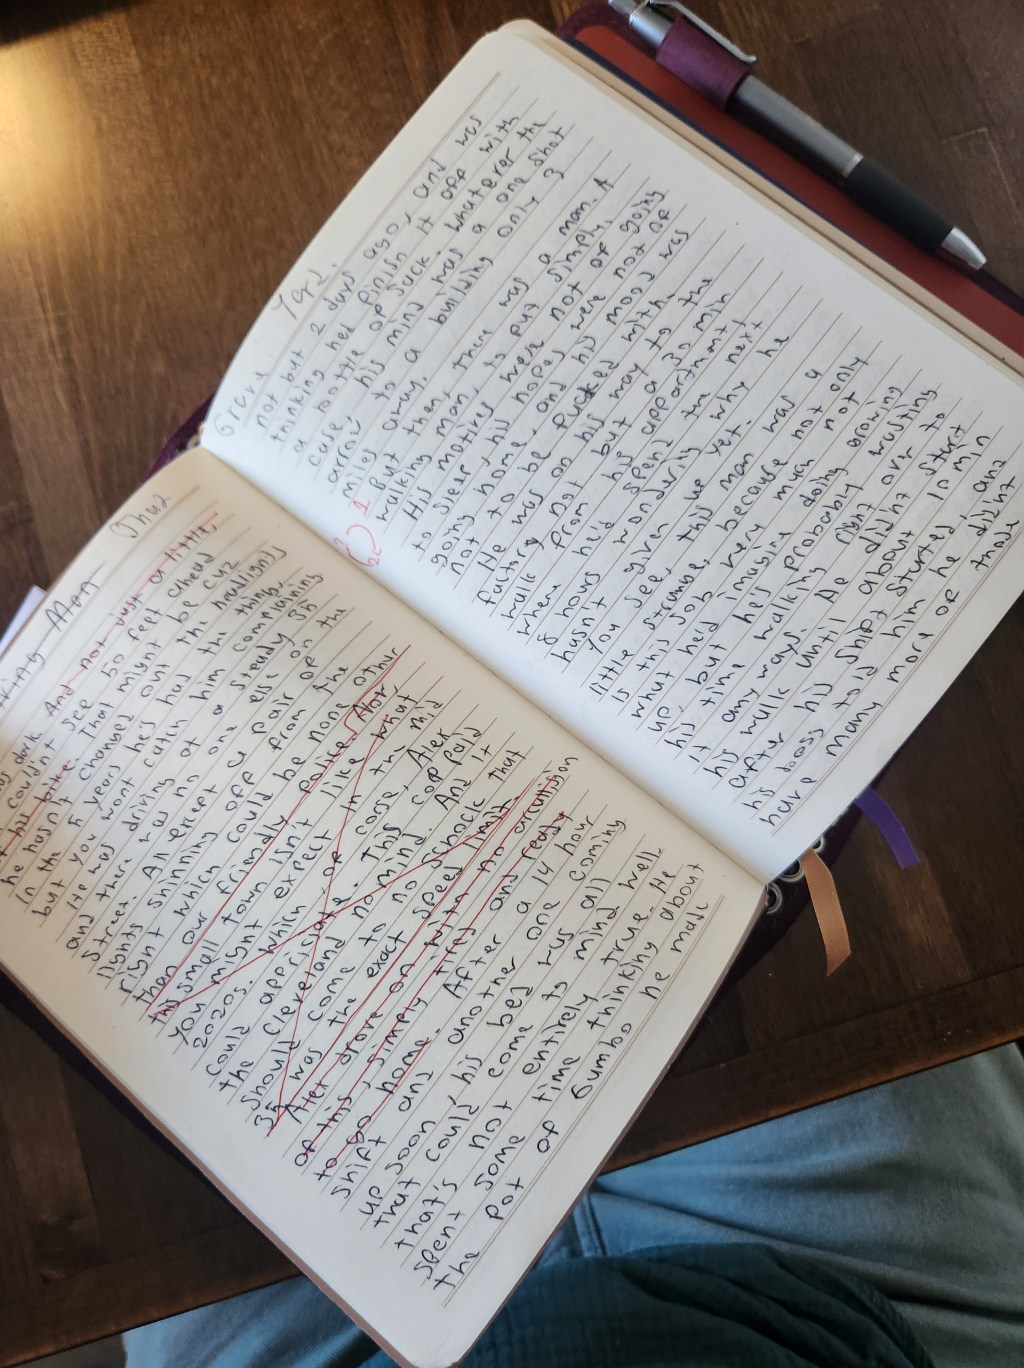 And not just a little,
he couldn't see 50 feet ahead
his bike. That might be cuz
in the 5 years he's had the thing
he hasn't changed out the headlights
but you wont catch him complaining
He was driving at a steady 35
and there was no one else on the
street. All except a pair of
lights shining off from the
right which could be none other
than our friendly police. Not
this small town isn't like what
you might expect or in the mid
2020s. Which of corse, Alex
could appriciate. This cop paid
the Cleveland no mind. And it
should come to no shock that
35 was the exact speed limit.
Alex drove on with no
of this, simply tired and ready
to go home. After a 14 hour
shift and another one coming
up soon, his bed was all
that could come to mind. well-
that's not entirely true. He
spent some time thinking about
the pot of Gumbo he made
Yard.
not but 2 days ago, and was
thinking hed finish it off with
a bottle of Jack. Whatever the
case, his mind was a one shot
to a building only 3
miles away.
1 But then, there was a man. A
walking man, to put simply.
His motives were not of going
to sleep, his hopes were not of
going home, and his mood was
not to be fucked with.
He was on his way to the
factory not but a 30 min
walk from his appartment
where he'd spend the next
8 hours wondering why he
hasn't given up yet.
You see, this man was a
little strange, because not only
is this job very much not
what held imagine doing
up, but he's probably wasting
his time walking right over to
it any ways. He didn't start
his walk until about min
after his shift started, and
his boss told him he didnt
have many more of those